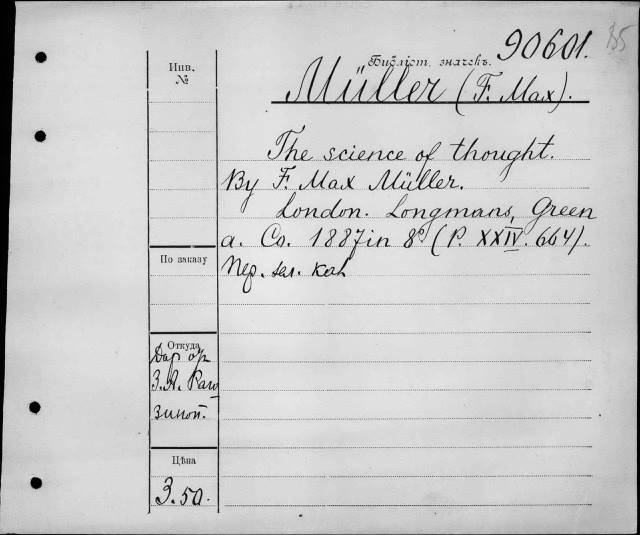 85
90601.
Библіот. значекъ.
Müller (F. Max).
Инв.
№
The science of thought.
By F. Max Müller.
London. Longmans, Green
a. Co. 1887 in 8º (P. XXIV. 664).
По заказу
Пер.
Откуда
Дар
З. А. Раго
зиной.
Цѣна
3.50.